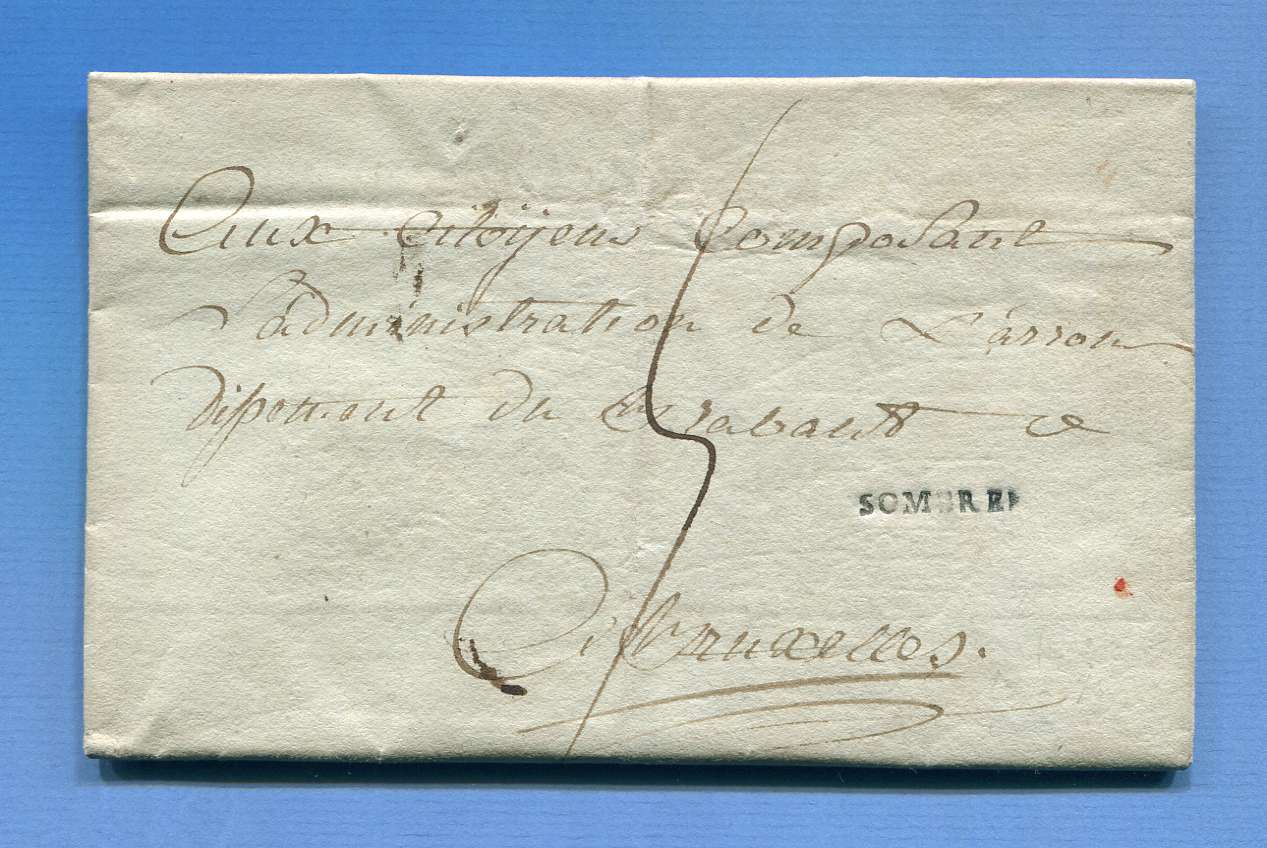 Aux Citoÿens Composant
L'administration de L'arron
dissement du Brabant &
SOMBREF
A Bruxelles.